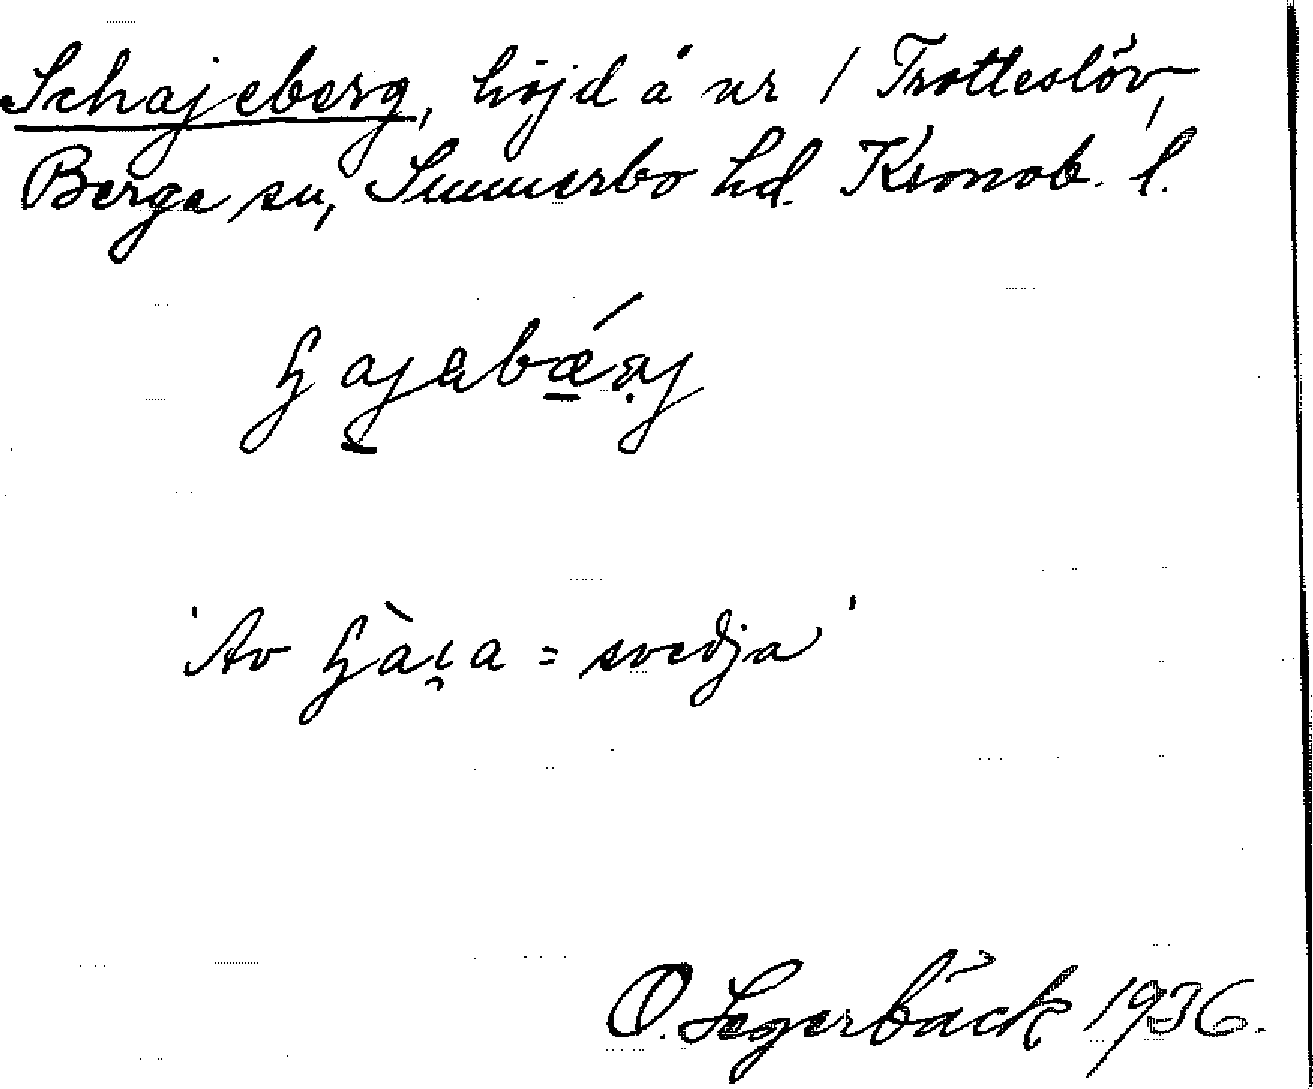 Schajeberg, höjd å nr 1 Trotteslöv,
Berga sn, Sunnerbo hd. Kronob. l.
'Av ɧàɩ̯a = svedja'
O. Segerbäck 1936.